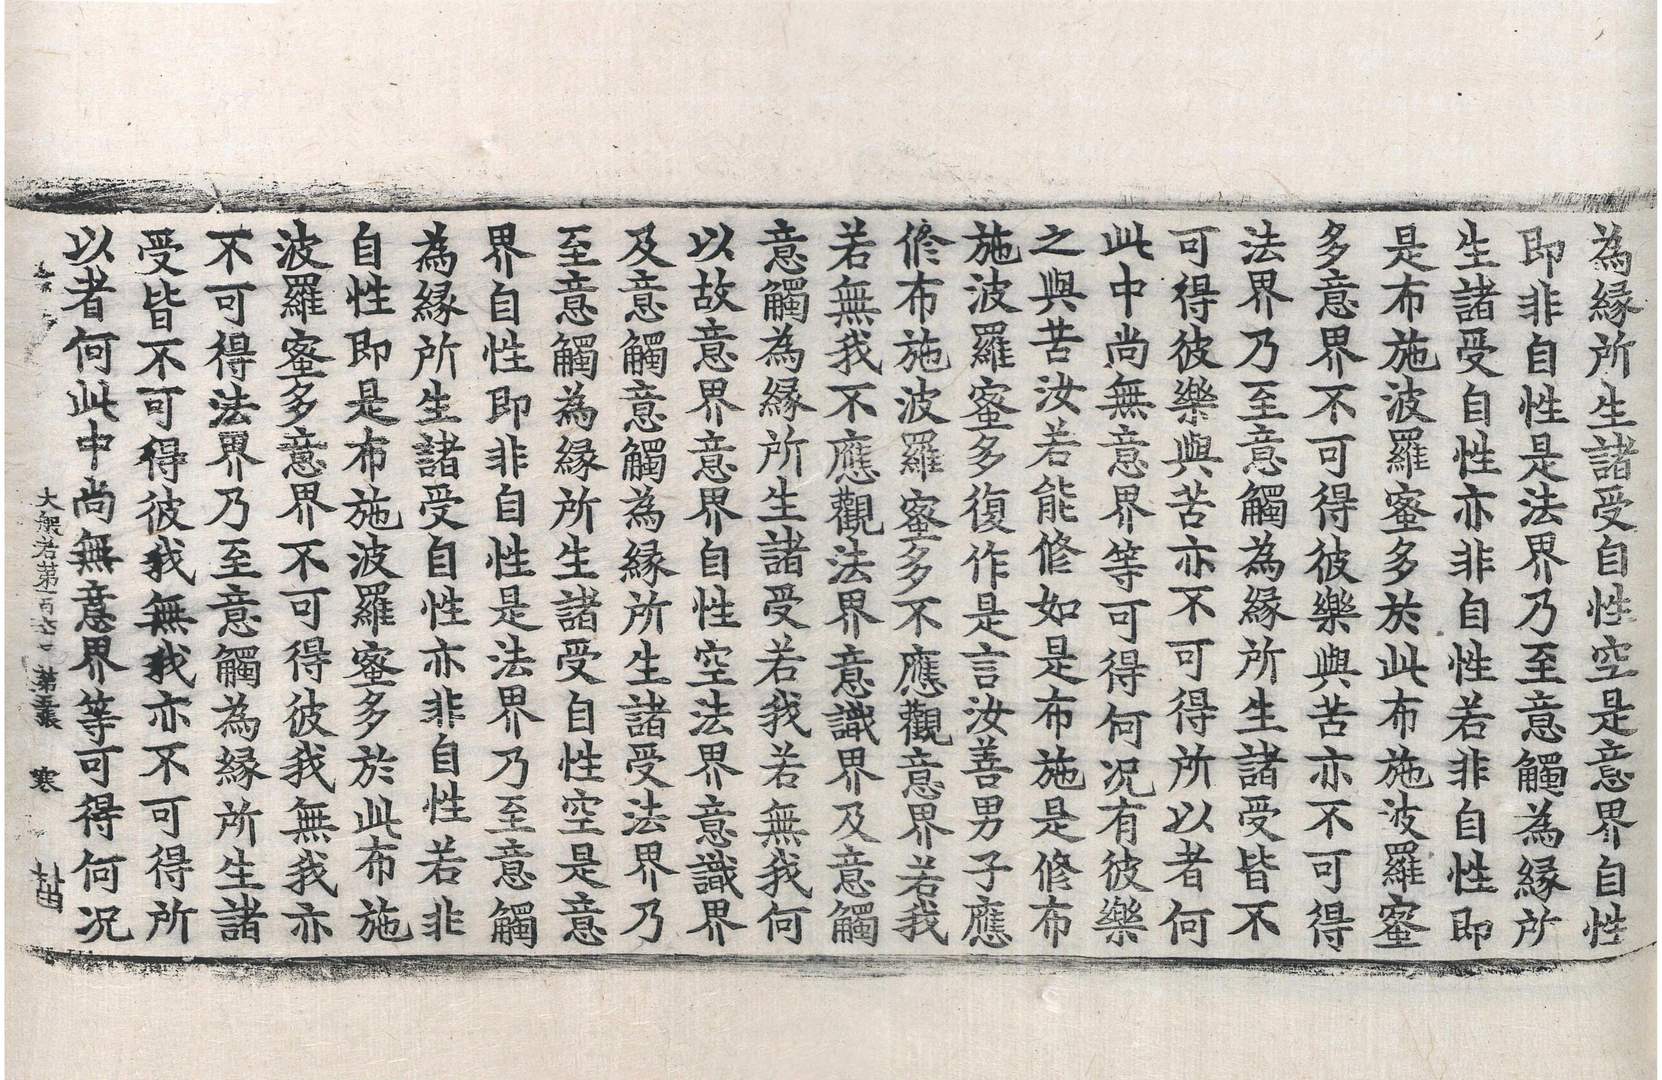 為縁所生諸受自性空是意界自性
即非自性是法界乃至意觸為縁所
生諸受自性亦非自性若非自性即
是布施波羅蜜多於此布施波羅蜜
多意界不可得彼樂與苦亦不可得
法界乃至意觸為縁所生諸受皆不
可得彼樂與苦亦不可得所以者何
此中尚無意界等可得何况有彼樂
之與苦汝若能修如是布施是修布
施波羅蜜多復作是言汝善男子應
修布施波羅蜜多不應觀意界若我
若無我不應觀法界意識界及意觸
意觸為縁所生諸受若我若無我何
以故意界意界自性空法界意識界
及意觸意觸為縁所生諸受法界乃
至意觸為縁所生諸受自性空是意
界自性即非自性是法界乃至意觸
為縁所生諸受自性亦非自性若非
自性即是布施波羅蜜多於此布施
波羅蜜多意界不可得彼我無我亦
不可得法界乃至意觸為縁所生諸
受皆不可得彼我無我亦不可得所
以者何此中尚無意界等可得何况
大般若第百 第五張 寒